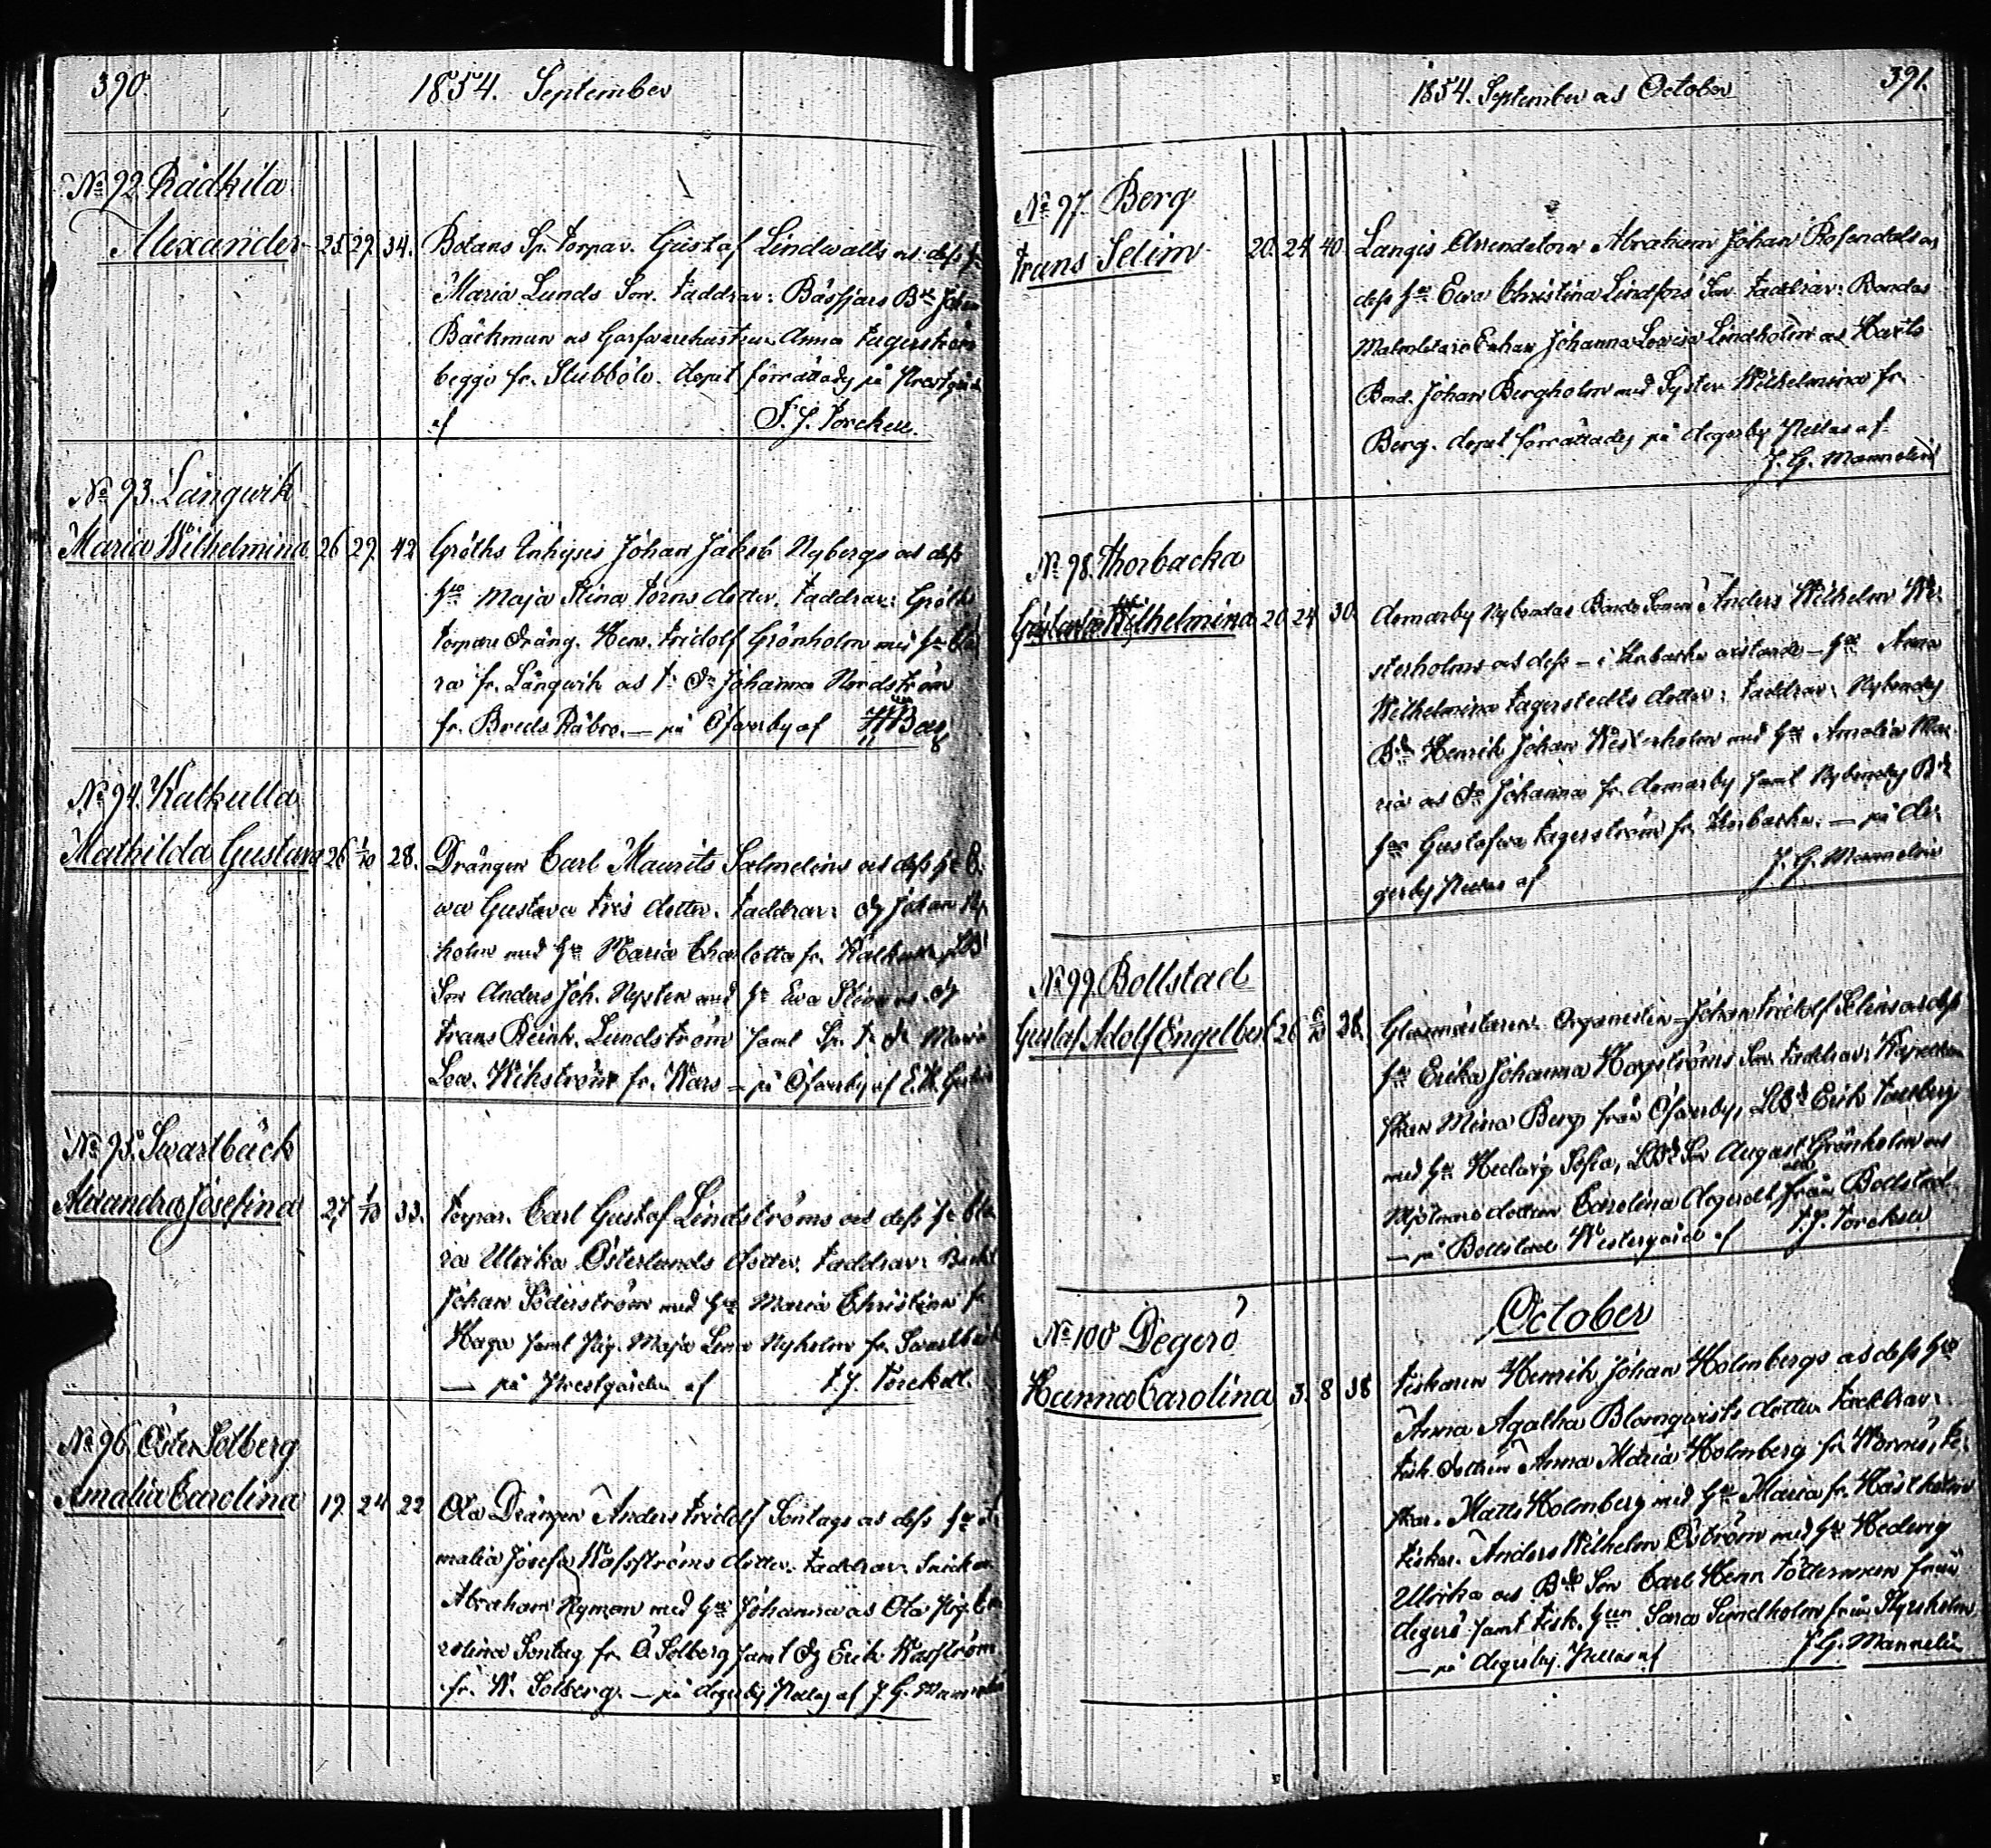 390.
1854. September
No 92. Rådkila
Alexander 25. 29. 34. Botans Sp. Torpar. Gustaf Lindwalls os dess h
Maria Lunds Son. Faddrar: Båsfjars Bd Johan
Bäckman os Garfwarehustrun Anna Fagerström
begge fr. Stubböle. Dopet förrättades på Prestgård
af F. J. Torckell.
No 93. Långwik
Maria Wilhelmina 26 29. 42 Gröths Inhyses Johan Jakob Nybergs os dess
hu Maja Stina Torns dotter. Faddrar: Gröths
torpare Dräng. Henr. Fridolf Grönholm med hu Cla
ra fr. Långwik os Johanna Nordström
fr. Breds Råbro. — på Öfwerby af
No 94. Kalkulla
Mathilda Gustava 26 1/10 28. Drängen Carl Maurits Salmelins os dess hu E.
wa Gustava Fris dotter. Faddrar: Dg Johan Ny
holm med hu Maria Charlotta fr. Kalkulla,
Son Anders Joh. Nysten med hu Eva Stina os Dg
Frans Reinh. Lundström samt Sp. Maria
Lov. Wikström fr. Wars — på Öfwerby af E. W.
No 95. Swartbäck
Alexandra Josefina 27 1/10 33. Torpar. Carl Gustaf Lindströms os dess hu Cla
ra Ulrika Österlunds dotter. Faddrar:
Johan Söderström med hu Maria Christina fr
Haga samt Pig. Maja Lena Nyholm fr. Swartbäck
— på Prestgården af F. J. Torckell.
No 96. Öster Solberg
Amalia Carolina 19. 24 22 Ola Drängen Anders Fridolf Sontags os dess hu A
malia Josefa Wassströms dotter. Faddrar: Snickar.
Abraham Nyman med hu Johanna os Ola Pig. Ca
rolina Sontag fr. Ö Solberg samt Dg Erik Wasström
fr. W. Solberg. — på Degerby Kellas af J. G. Mannelin
1854. September os October
391.
No 97. Berg
Frans Selim 20. 24 40 Langis Arrendatorn Abraham Johan Rosendals os
dess hu Ewa Christina Lindfors Son. Faddrar: Bondas
Malmletare Enkan Johanna Lovisa Lindholm os
Bond. Johan Bergholm med Syster Wilhelmina fr.
Berg. Dopet förrättades på Degerby Kellas af
J. G. Mannelin
No 98. Thorbacka
Gustava Wilhelmina 20 24 30. Domarby Nybondas Bonde Sonen Anders Wilhelm We-
sterholms os dess — i Thorbacka wistande — hu Anna
Wilhelmina Fagerstedts dotter: Faddrar: Nybondas
Bd Henrik Johan Westerholm med hu Amalia Ma-
ria os Do Johanna fr. Domarby samt Nybondas Bd
hu Gustafwa Fagerström fr. Thorbacka. — på De-
gerby Kellas af J. G. Mannelin
No 99. Bollstad
Gustaf Adolf Engelbert 26 6/10 38. Glasmästaren Organisten Johan Fridolf Selins os dess
hu Erika Johanna Hagströms Son. Faddrar:
skan Mina Berg från Öfwerby, Erik Forsberg
med hu Hedwig Sofia, Son August Grönholm os
Mjölnare dottern Carolina Degerdt från Bollstad.
— på Bollstad Westergård af F. J. Torckell
October
No 100 Degerö
Hanna Carolina 3. 8 38 Fiskaren Henrik Johan Holmbergs os dess hu
Anna Agatha Blomqwists dotter. Faddrar:
Fisk. dottren Anna Maria Holmberg fr. Wormö, Fi-
skar. Matts Holmberg med hu Maria fr. Hästholm
Fiskar. Anders Wilhelm Öström med hu Hedwig
Ulrika os Bd Son Carl Henr. Pöttermann från
Degerö samt Fisk. hun Sara Sundholm från Styrsholm
— på Degerby Kellas af J. G. Mannelin